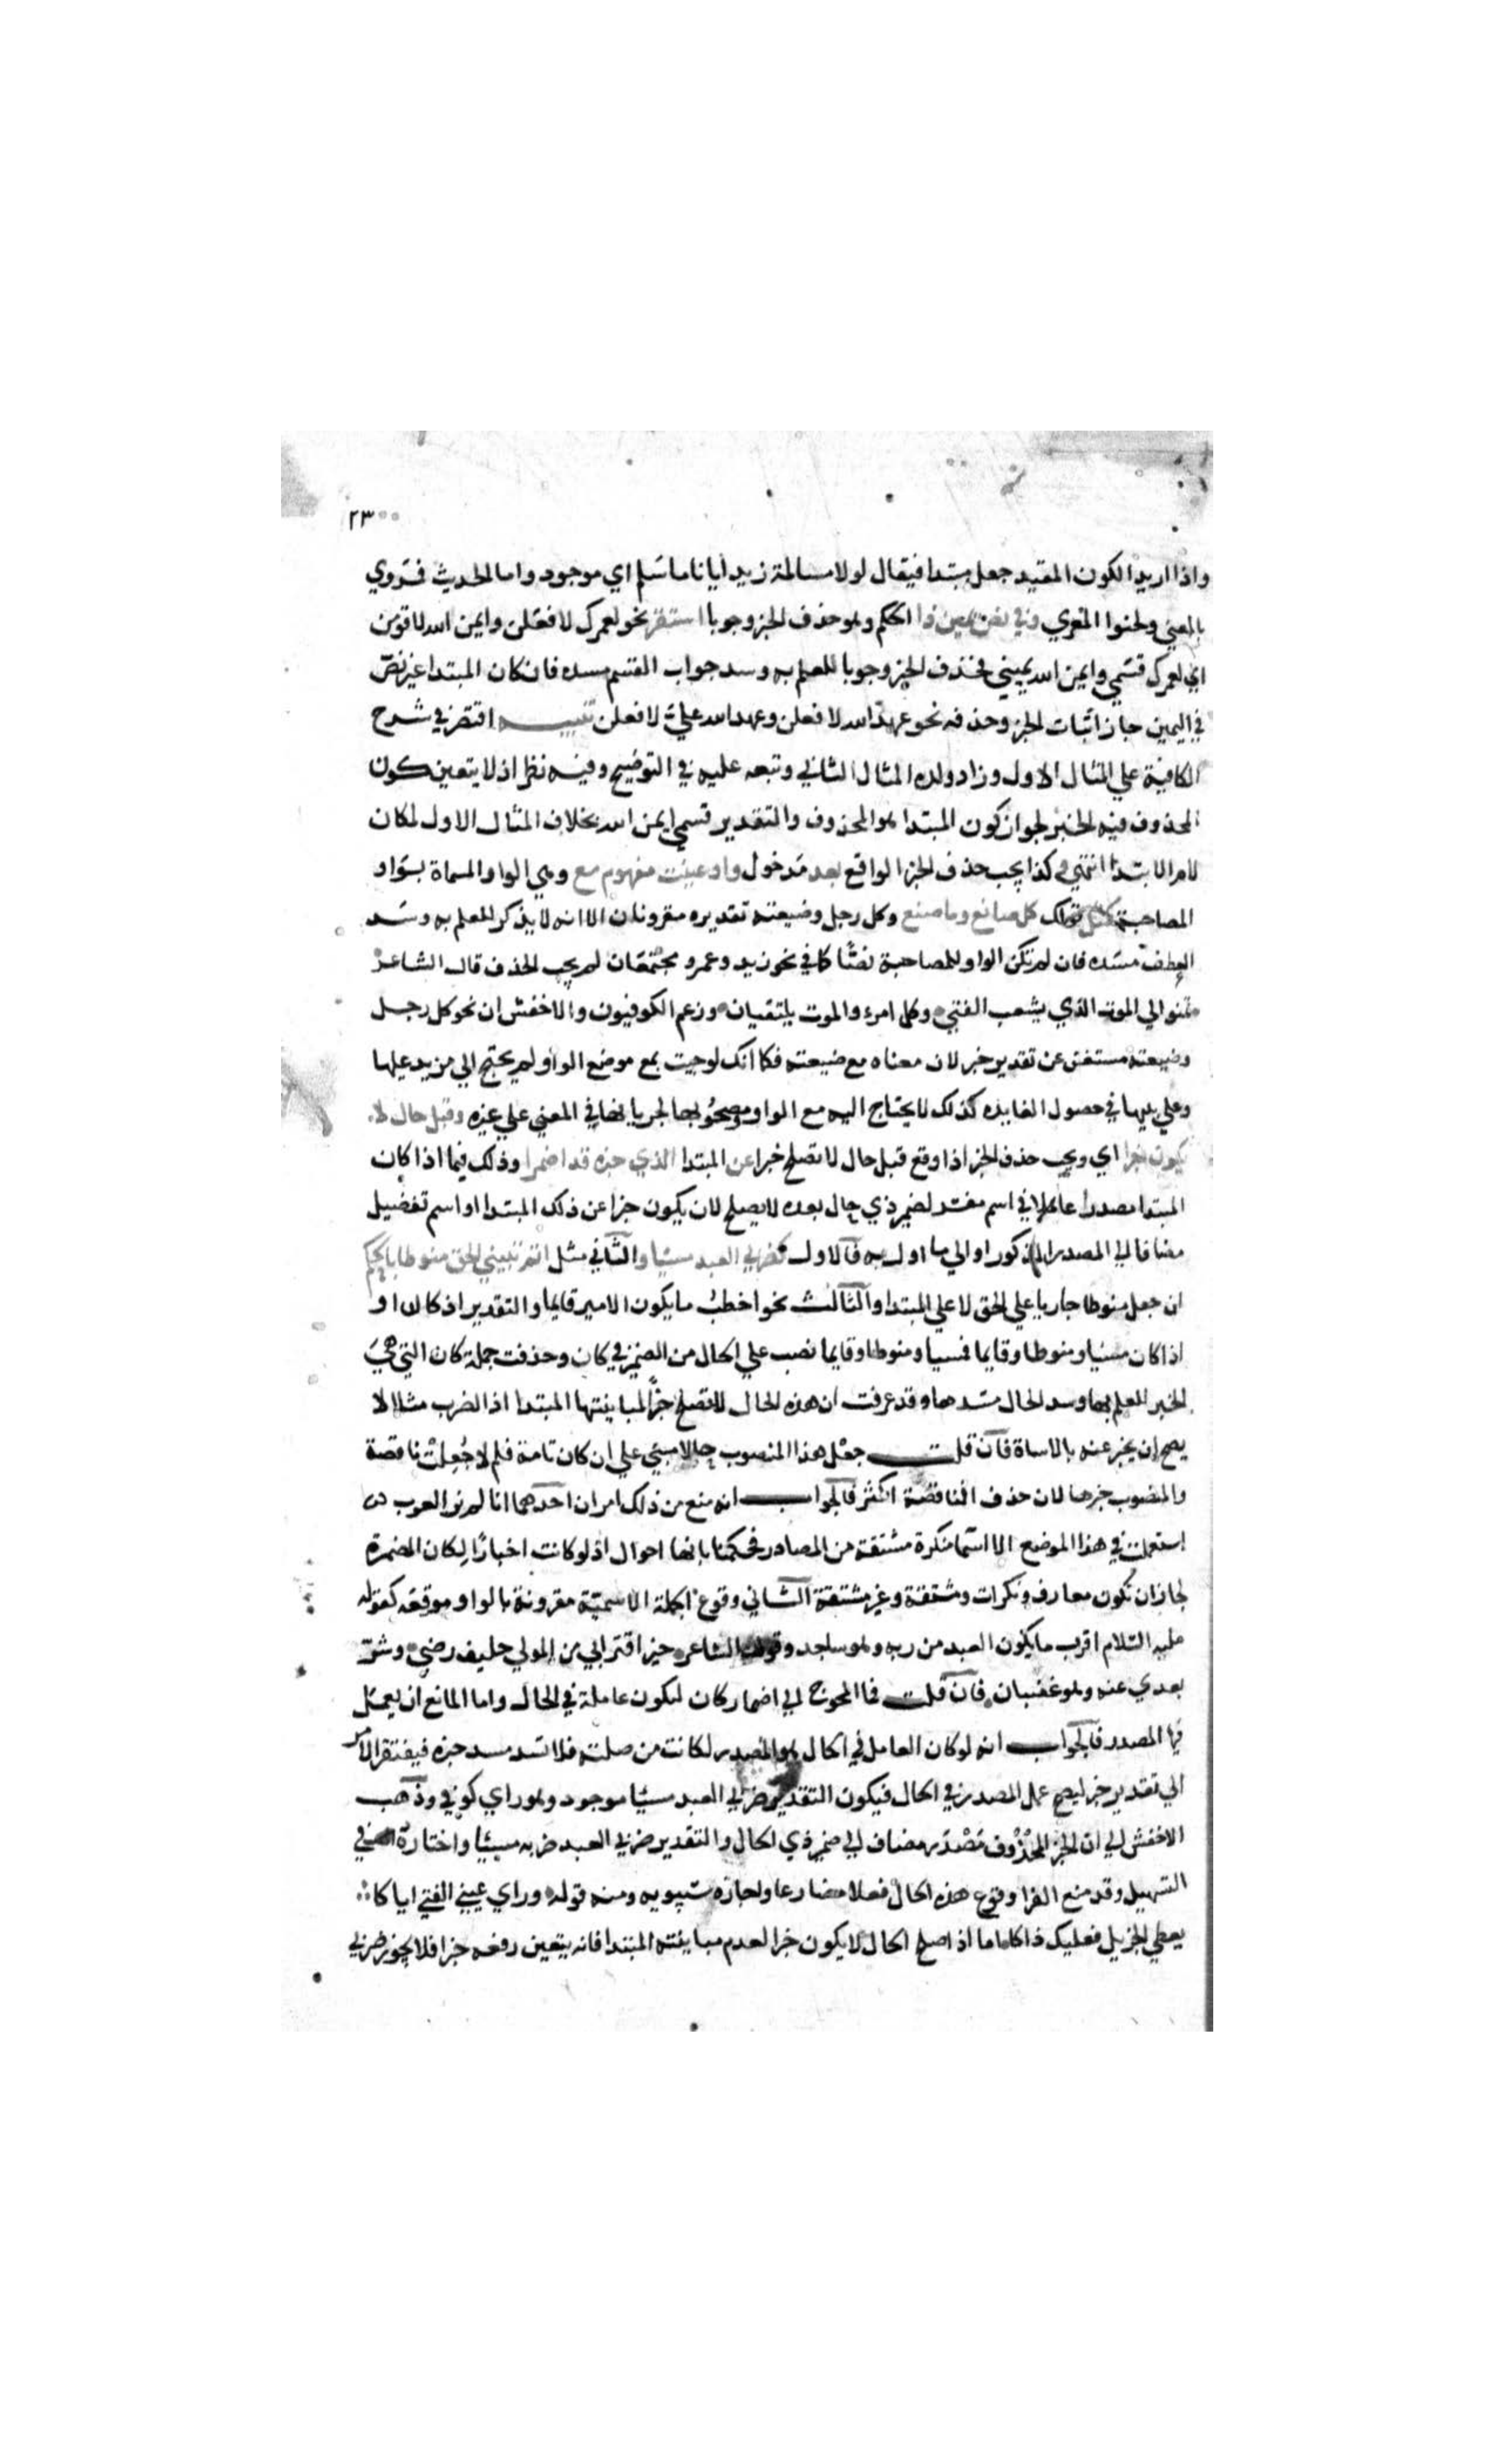 ٢٣٠٠
واذا اريد الكون المقيد جعل مبتدا فيقال لولا مسالمة زيد ايانا ما سَلِم اي موجود واما الحديث فَرُوي
بالمعني ولحنوا المعري وفي نص يمين ذا الحكم وهو حذف الخبر وجوبا استقر نحو لعمرك لافعلن وايمن الله لاقومن
اي لعمرك قسَمي وايمن الله يميني فحذف الخبر وجوبا للعلم به وسد جواب القسم مسده فان كان المبتدا غير نصّ
في اليمين جاز اثبات الخبر وحذفه نحو عهد الله لافعلن وعهد الله عليّ لافعلن تنبيه اقتصر في شرح
الكافية علي المثال الاول وزاد ولده المثال الثاني وتبعه عليه في التوضيح وفيه نظر اذ لا يتعين كون
المحذوف فيه الخبر لجواز كون المبتدا هو المحذوف والتقدير قسمي ايمن الله بخلاف المثال الاول لمكان
لام الابتدا انتهي وكذا يجب حذف الخبر الواقع بعد مَدخول واو عينت مفهوم مع وهي الواو المسماة بوَاو
المصاحبة كمثل قولك كل صانع وما صنع وكل رجل وضيعته تقديره مقرونان الا انه لا يذكر للعلم به وسَد
العطف مسَده فان لم تكن الواو للمصاحبة نصًّا كما في نحو زيد وعمرو مجتمعَان لم يجب الحذف قال الشاعر
تمنوا لي الموت الذي يشعب الفتي وكل امرء والموت يلتقيان وزعم الكوفيون والاخفش ان نحو كل رجل
وضيعته مستغن عن تقدير خبر لان معناه مع ضيعته فكما انك لو جيت بمع موضع الواو لم يحتج الي مزيد عليها
وعلي يليها في حصول الفايده كذلك لا يحتاج اليه مع الواو ومصحُوبها لجريانها في المعني علي غيره وقبل حال لا
يكون خبرا اي ويجب حذف الخبر اذا وقع قبل حال لا تصلح خبرا عن المبتدا الذي خبره قد اضمرا وذلك فيما اذا كان
المبتدا مصدرا عاملا في اسم مفسّر لضمير ذي حال بعده لا يصلح لان يكون خبرا عن ذلك المبتدا او اسم تفضيل
مضافا الي المصدر المذكور او الي ما اول به فالاول كضربي العبد مسيًا والثاني مثل اتم تبييني الحق منوطا بالحكم
ان جعل منوطا جاريا علي الحق لا علي المبتدا والثالث نحو اخطبُ ما يكون الامير قايما والتقدير اذ كان او
اذا كان مسيا ومنوطا وقايما فمسيا ومنوطا وقايما نصب علي الحال من الضمير في كان وحذفت جملة كان التي هيَ
الخبر للعلم بها وسد الحال مسَدها وقد عرفت ان هذه الحال لا تصلح خبرًا لمباينتها المبتدا اذ الضرب مثلا لا
يصح ان يخبر عنه بالاساة فان قلت جعْل هذا المنصوب حالا مبني علي ان كان تامة فلم لا جُعِلتْ ناقصة
والمنصوب خبرها لان حذف الناقصة اكثر فالجواب انه منع من ذلك امران احدهما انا لم نر العرب
استعملت في هذا الموضع الا اسما نكرة مشتقة من المصادر فحكمنا بانها احوال اذ لو كانت اخبارًا لكان المضمرة
لجاز ان تكون معارف ونكرات ومشتقة وغير مشتقة الثاني وقوع الجملة الاسميّة مقرونة بالواو موقعَه كقوله
عليه السّلام اقرب ما يكون العبد من ربه وهو ساجد وقول الشاعر خير اقترابي من المولي حليف رضي وشرّ
بعدي عنه وهو غضبان فان قلت فما المحوج الي اضمار كان لتكون عاملة في الحال واما المانع ان يعمَل
فيها المصدر فالجواب انه لو كان العامل في الحال هو المصدر لكانت من صلته فلا تسد مسد خبره فيفتقر الامر
الي تقدير خبر ليصح عمل المصدر في الحال فيكون التقدير ضربي العبد مسيًا موجود وهو راي كوفي وذهب
الاخفش الي ان الخبر المحذُوف مَصْدَر مضاف الي ضمير ذي الحال والتقدير ضربي العبد ضربه مسيئًا واختاره في
التسهيل وقد منع الفرا وقوع هذه الحال فعلا مضارعا واجازه سيبويه ومنه قوله وراي عيني الفتي اياكا
يعطي الجزيل فعليك ذاكا اما اذا صلح الحال لا يكون خبرا لعدم مباينته المبتدا فانه يتعين رفعه خبرا فلا يجوز ضربي